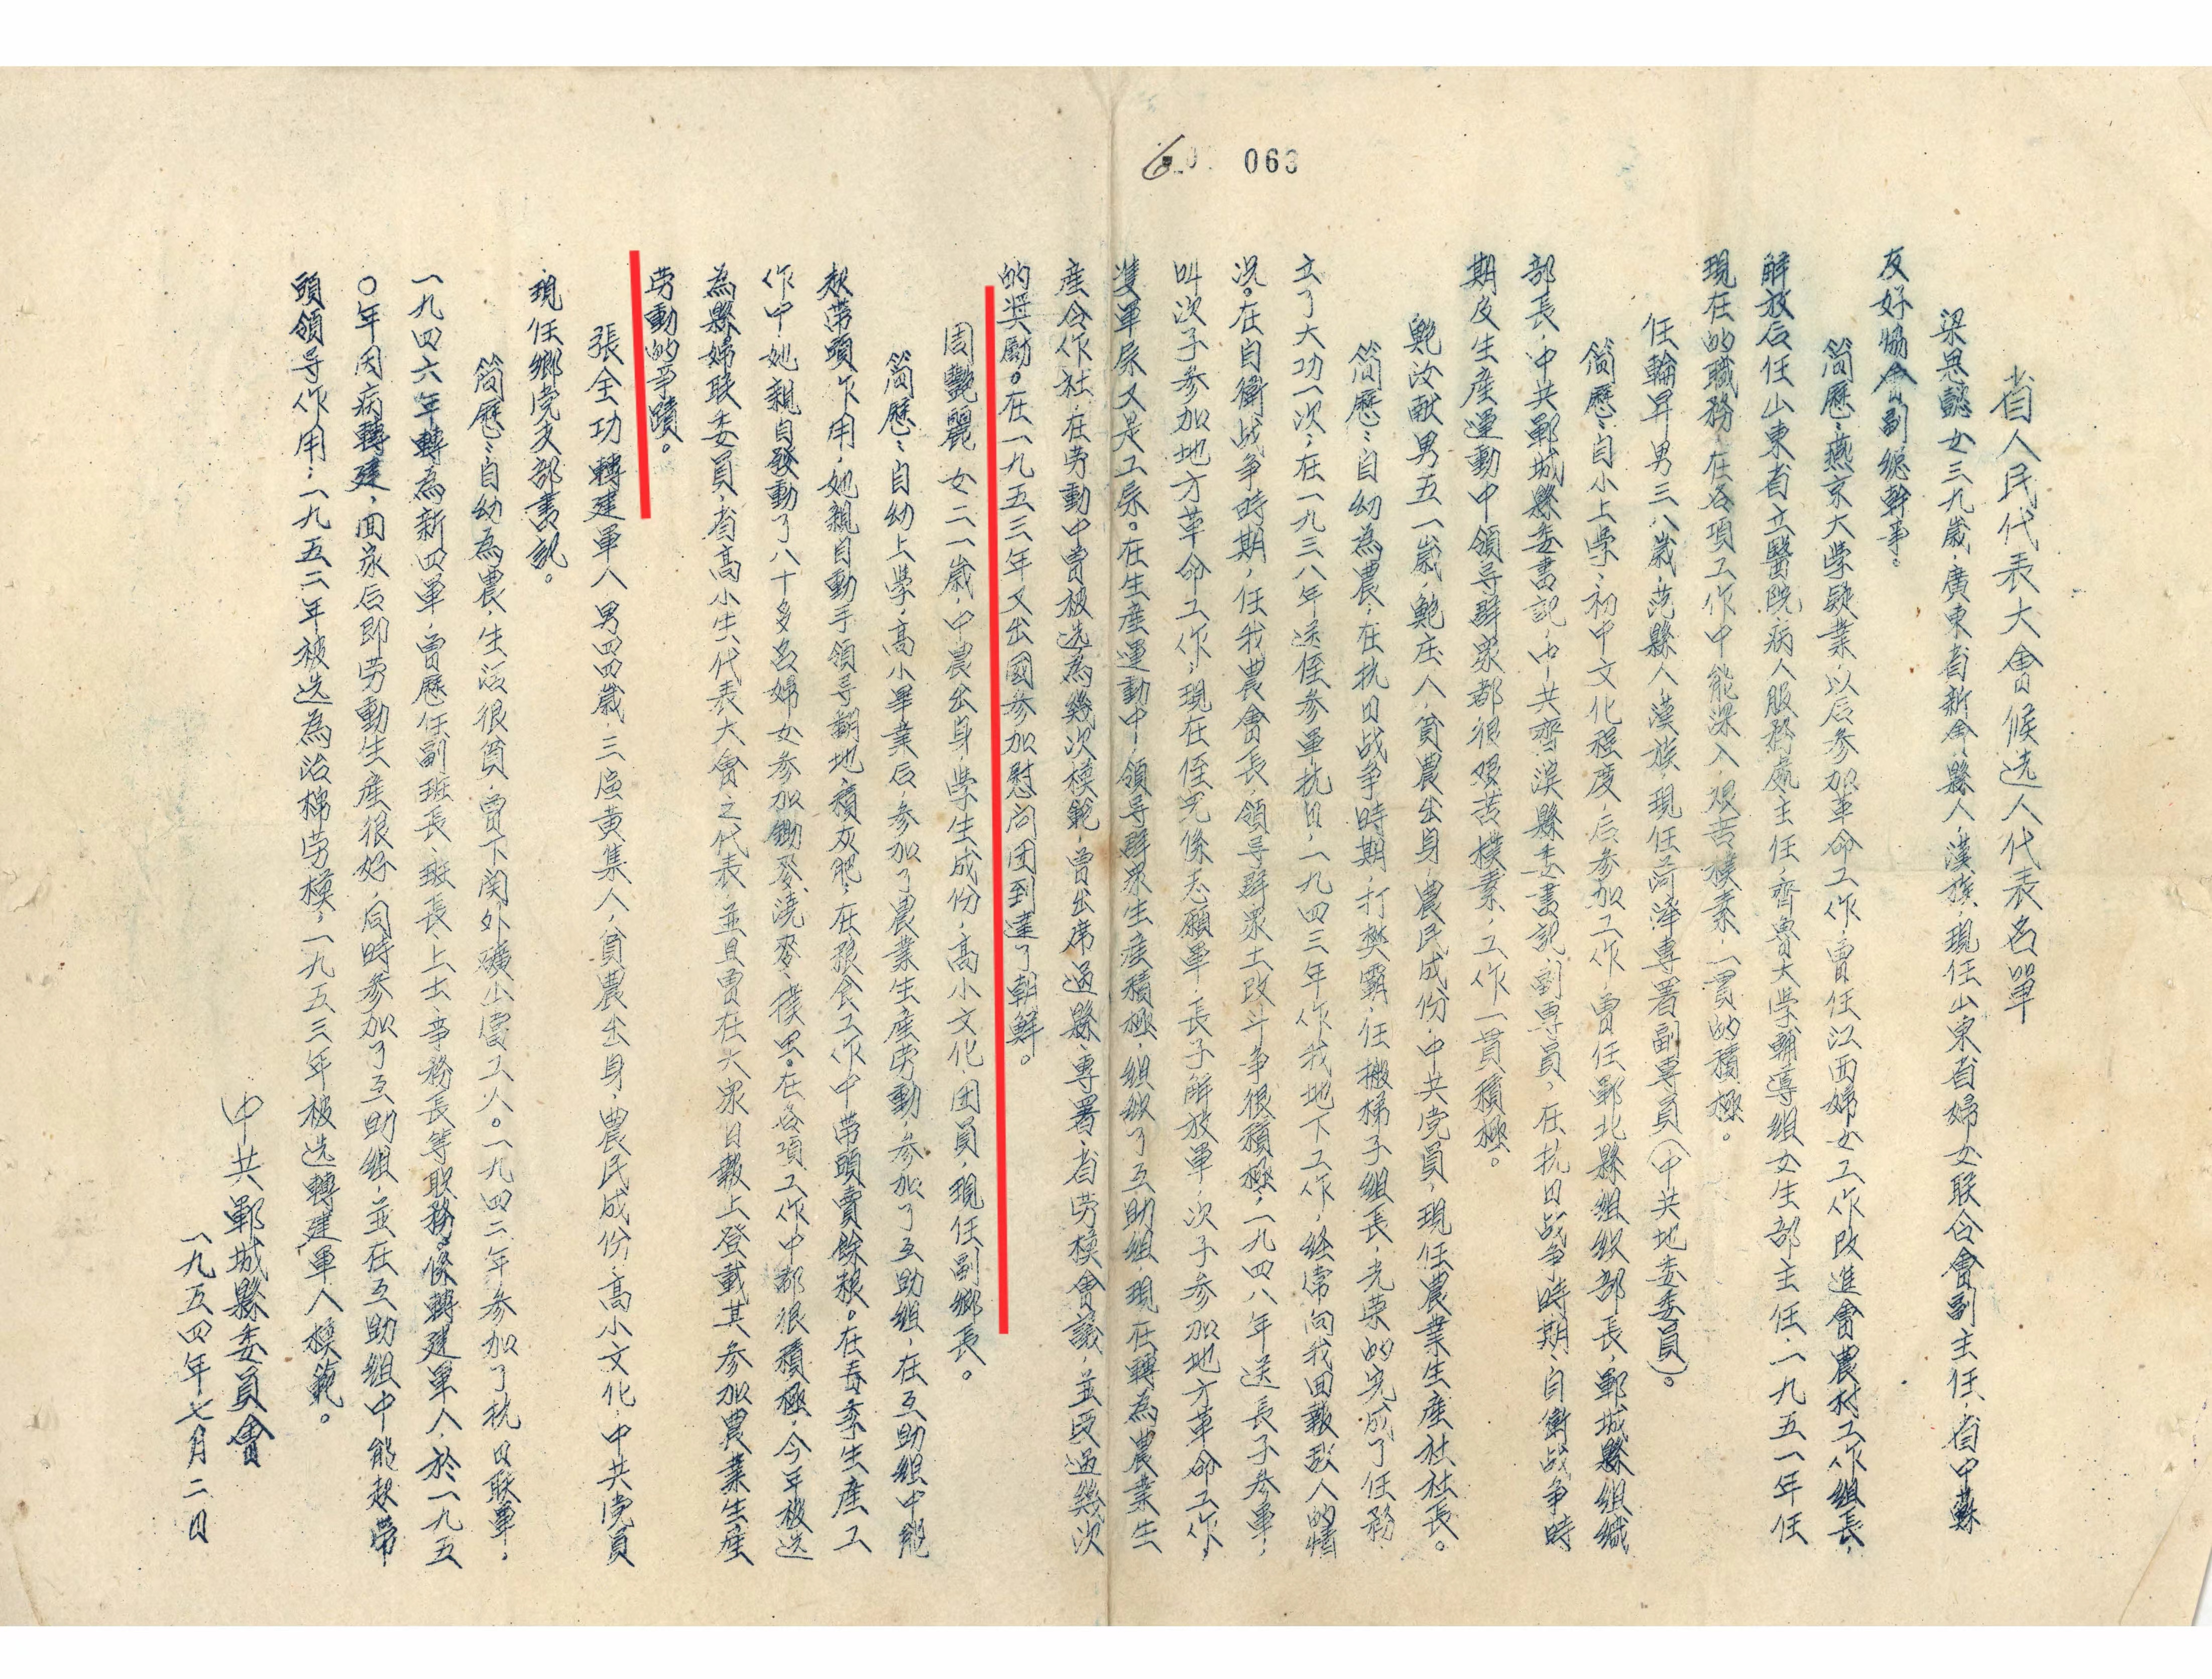 063
省人民代表大會候选人代表名單
梁思懿女三九歲，廣東省新會縣人，漢族，現任山東省婦女联合會副主任、省中蘇
友好協會副總幹事。
簡歷：燕京大學肄業，以后参加革命工作，曾任江西婦女工作改進會農村工作組長，
解放后任山東省立醫院病人服務處主任，齊魯大學輔導組女生部主任，一九五一年任
現在的職務，在各項工作中能深入，艰苦樸素，一貫的積極。
任輪昇男三八歲，范縣人，漢族，現任菏澤專署副專員（中共地委委員）。
簡歷：自小上學，初中文化程度，后参加工作，曾任鄆北縣組织部長，鄆城縣組織
部長，中共鄆城縣委書記，中共齊濱縣委書記，副專員，在抗日战争時期、自衛战争時
期及生產運動中領导群众都很艰苦樸素，工作一貫積極。
鮑汝献男五一歲，鮑庄人，貧農出身，農民成份，中共党員，現任農業生產社社長。
簡歷：自幼為農，在抗日战争時期，打樊霸，任搬梯子組長，光荣的完成了任務，
立了大功一次，在一九三八年送侄参軍抗日，一九四三年作我地下工作，经常向我回報敌人的情
况。在自衛战争時期，任我農會長，領导群众土改斗争很積極，一九四八年送長子参軍，
叫次子参加地方革命工作，現在侄兒係志願軍，長子解放軍，次子参加地方革命工作，
雙軍屬又是工屬。在生產運動中，領导群众生產積極，組织了互助組，現在轉為農業生
產合作社，在劳動中曾被选為幾次模範，曾出席過縣、專署、省劳模會議，並受過幾次
的奖励。在一九五三年又出國参加慰问团到達了朝鮮。
周艷麗女二一歲，中農出身，學生成份，高小文化，团員，現任副鄉長。
簡歷：自幼上學，高小畢業后，参加了農業生產劳動，参加了互助組，在互助組中能
起帶頭作用，她親自動手領导翻地積灰肥，在粮食工作中帶頭賣餘粮。在春季生產工
作中她親自發動了八十多名婦女参加鋤麥澆麥、撲虫。在各項工作中都很積極，今年被选
為縣婦联委員，省高小生代表大會之代表，並且曾在大众日報上登載其参加農業生產
劳動的事蹟。
張全功轉建軍人男四四歲，三區黃集人，貧農出身，農民成份，高小文化，中共党員
現任鄉党支部書記。
簡歷：自幼為農，生活很貧，曾下関外礦山當工人。一九四二年参加了抗日联軍，
一九四六年轉為新四軍，曾歷任副班長、班長、上士、事務長等职務。係轉建軍人，於一九五
〇年因病轉建，回家后即劳動生產很好，同時参加了互助組，並在互助組中能起帶
頭領导作用，一九五二年被选為治棉劳模，一九五三年被选轉建軍人模範。
中共鄆城縣委員會
一九五四年七月二日